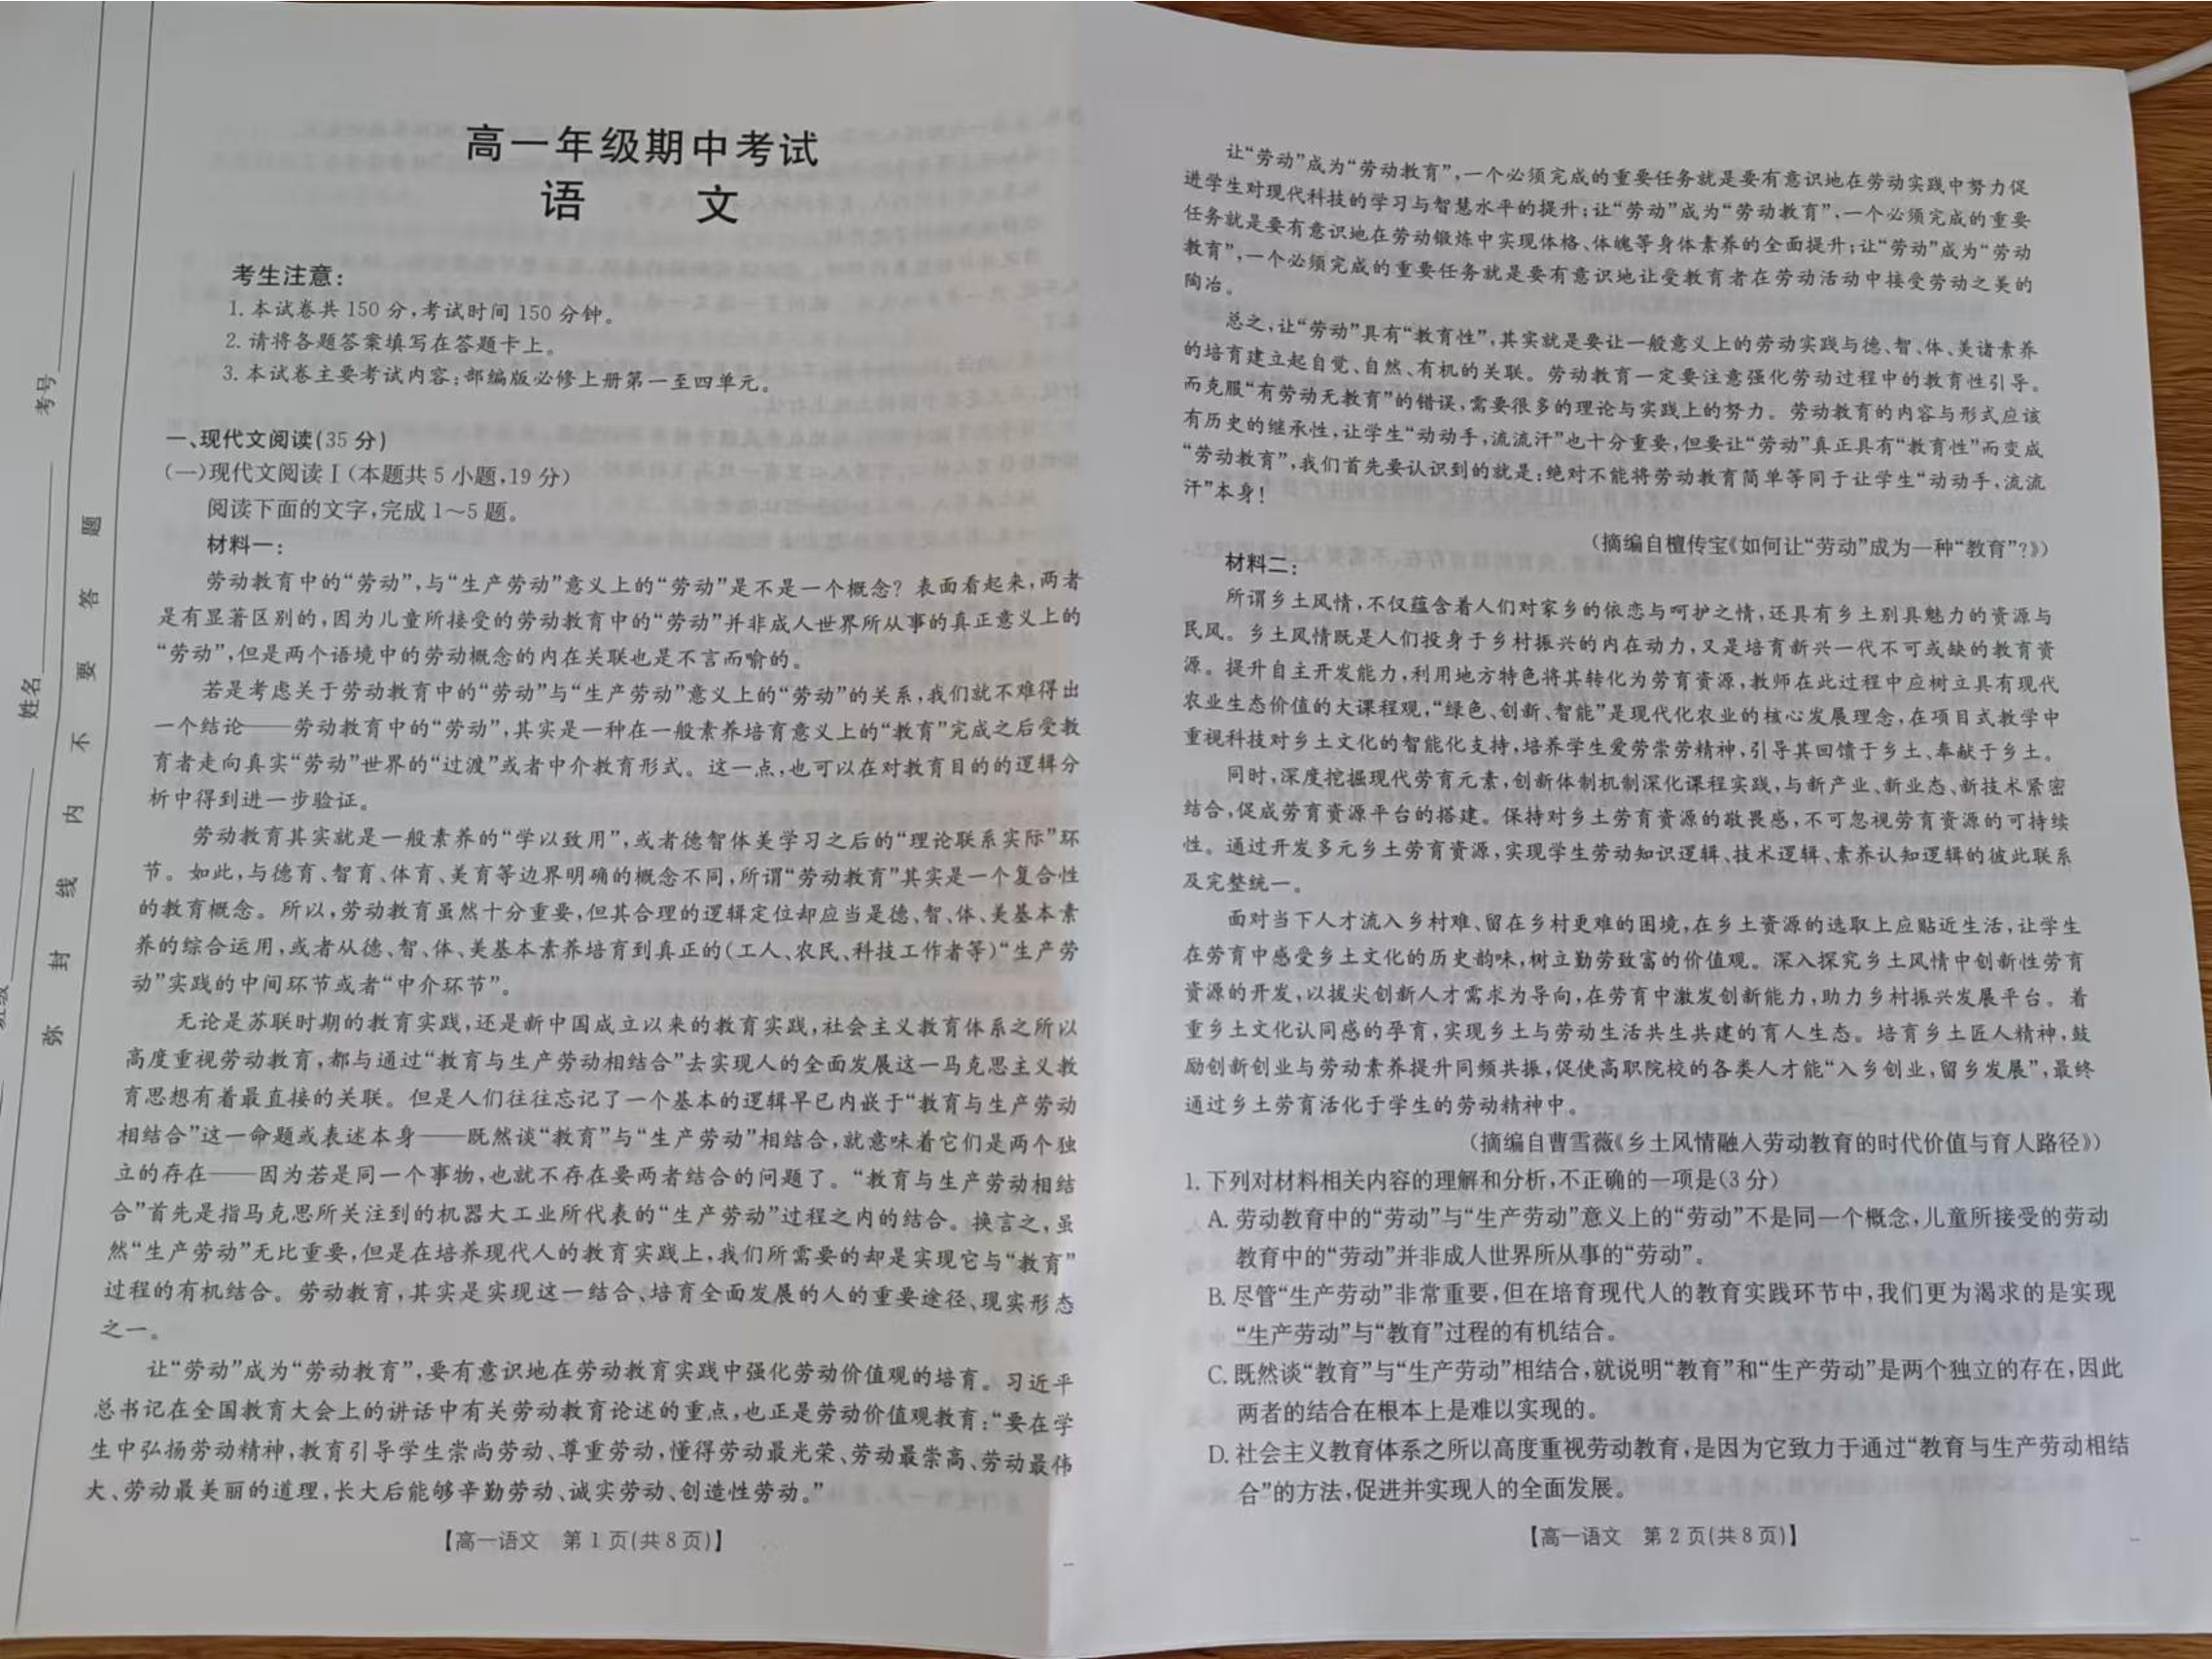 高一年级期中考试
语 文
考生注意：
1. 本试卷共 150 分，考试时间 150 分钟。
2. 请将各题答案填写在答题卡上。
3. 本试卷主要考试内容：部编版必修上册第一至四单元。
一、现代文阅读(35 分)
(一)现代文阅读 I (本题共 5 小题，19 分)
阅读下面的文字，完成 1～5 题。
材料一：
劳动教育中的“劳动”，与“生产劳动”意义上的“劳动”是不是一个概念？表面看起来，两者
是有显著区别的，因为儿童所接受的劳动教育中的“劳动”并非成人世界所从事的真正意义上的
“劳动”，但是两个语境中的劳动概念的内在关联也是不言而喻的。
若是考虑关于劳动教育中的“劳动”与“生产劳动”意义上的“劳动”的关系，我们就不难得出
一个结论——劳动教育中的“劳动”，其实是一种在一般素养培育意义上的“教育”完成之后受教
育者走向真实“劳动”世界的“过渡”或者中介教育形式。这一点，也可以在对教育目的的逻辑分
析中得到进一步验证。
劳动教育其实就是一般素养的“学以致用”，或者德智体美学习之后的“理论联系实际”环
节。如此，与德育、智育、体育、美育等边界明确的概念不同，所谓“劳动教育”其实是一个复合性
的教育概念。所以，劳动教育虽然十分重要，但其合理的逻辑定位却应当是德、智、体、美基本素
养的综合运用，或者从德、智、体、美基本素养培育到真正的(工人、农民、科技工作者等)“生产劳
动”实践的中间环节或者“中介环节”。
无论是苏联时期的教育实践，还是新中国成立以来的教育实践，社会主义教育体系之所以
高度重视劳动教育，都与通过“教育与生产劳动相结合”去实现人的全面发展这一马克思主义教
育思想有着最直接的关联。但是人们往往忘记了一个基本的逻辑早已内嵌于“教育与生产劳动
相结合”这一命题或表述本身——既然谈“教育”与“生产劳动”相结合，就意味着它们是两个独
立的存在——因为若是同一个事物，也就不存在要两者结合的问题了。“教育与生产劳动相结
合”首先是指马克思所关注到的机器大工业所代表的“生产劳动”过程之内的结合。换言之，虽
然“生产劳动”无比重要，但是在培养现代人的教育实践上，我们所需要的却是实现它与“教育”
过程的有机结合。劳动教育，其实是实现这一结合、培育全面发展的人的重要途径、现实形态
之一。
让“劳动”成为“劳动教育”，要有意识地在劳动教育实践中强化劳动价值观的培育。习近平
总书记在全国教育大会上的讲话中有关劳动教育论述的重点，也正是劳动价值观教育：“要在学
生中弘扬劳动精神，教育引导学生崇尚劳动、尊重劳动，懂得劳动最光荣、劳动最崇高、劳动最伟
大、劳动最美丽的道理，长大后能够辛勤劳动、诚实劳动、创造性劳动。”
【高一语文 第 1 页(共 8 页)】
考号
姓名
弥 封 线 内 不 要 答 题
让“劳动”成为“劳动教育”，一个必须完成的重要任务就是要有意识地在劳动实践中努力促
进学生对现代科技的学习与智慧水平的提升；让“劳动”成为“劳动教育”，一个必须完成的重要
任务就是要有意识地在劳动锻炼中实现体格、体魄等身体素养的全面提升；让“劳动”成为“劳动
教育”，一个必须完成的重要任务就是要有意识地让受教育者在劳动活动中接受劳动之美的
陶冶。
总之，让“劳动”具有“教育性”，其实就是要让一般意义上的劳动实践与德、智、体、美诸素养
的培育建立起自觉、自然、有机的关联。劳动教育一定要注意强化劳动过程中的教育性引导。
而克服“有劳动无教育”的错误，需要很多的理论与实践上的努力。劳动教育的内容与形式应该
有历史的继承性，让学生“动动手，流流汗”也十分重要，但要让“劳动”真正具有“教育性”而变成
“劳动教育”，我们首先要认识到的就是：绝对不能将劳动教育简单等同于让学生“动动手，流流
汗”本身！
（摘编自檀传宝《如何让“劳动”成为一种“教育”？》）
材料二：
所谓乡土风情，不仅蕴含着人们对家乡的依恋与呵护之情，还具有乡土别具魅力的资源与
民风。乡土风情既是人们投身于乡村振兴的内在动力，又是培育新兴一代不可或缺的教育资
源。提升自主开发能力，利用地方特色将其转化为劳育资源，教师在此过程中应树立具有现代
农业生态价值的大课程观，“绿色、创新、智能”是现代化农业的核心发展理念，在项目式教学中
重视科技对乡土文化的智能化支持，培养学生爱劳崇劳精神，引导其回馈于乡土、奉献于乡土。
同时，深度挖掘现代劳育元素，创新体制机制深化课程实践，与新产业、新业态、新技术紧密
结合，促成劳育资源平台的搭建。保持对乡土劳育资源的敬畏感，不可忽视劳育资源的可持续
性。通过开发多元乡土劳育资源，实现学生劳动知识逻辑、技术逻辑、素养认知逻辑的彼此联系
及完整统一。
面对当下人才流入乡村难、留在乡村更难的困境，在乡土资源的选取上应贴近生活，让学生
在劳育中感受乡土文化的历史韵味，树立勤劳致富的价值观。深入探究乡土风情中创新性劳育
资源的开发，以拔尖创新人才需求为导向，在劳育中激发创新能力，助力乡村振兴发展平台。着
重乡土文化认同感的孕育，实现乡土与劳动生活共生共建的育人生态。培育乡土匠人精神，鼓
励创新创业与劳动素养提升同频共振，促使高职院校的各类人才能“入乡创业，留乡发展”，最终
通过乡土劳育活化于学生的劳动精神中。
（摘编自曹雪薇《乡土风情融入劳动教育的时代价值与育人路径》）
1. 下列对材料相关内容的理解和分析，不正确的一项是(3 分)
A. 劳动教育中的“劳动”与“生产劳动”意义上的“劳动”不是同一个概念，儿童所接受的劳动
教育中的“劳动”并非成人世界所从事的“劳动”。
B. 尽管“生产劳动”非常重要，但在培育现代人的教育实践环节中，我们更为渴求的是实现
“生产劳动”与“教育”过程的有机结合。
C. 既然谈“教育”与“生产劳动”相结合，就说明“教育”和“生产劳动”是两个独立的存在，因此
两者的结合在根本上是难以实现的。
D. 社会主义教育体系之所以高度重视劳动教育，是因为它致力于通过“教育与生产劳动相结
合”的方法，促进并实现人的全面发展。
【高一语文 第 2 页(共 8 页)】